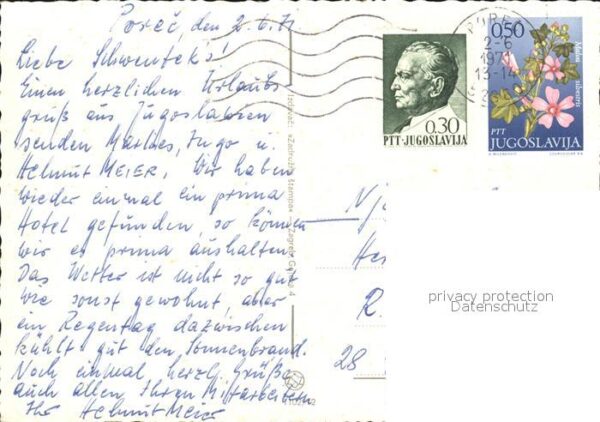 Poreč, den 2.6.71
Liebe Schwentek's!
Einen herzlichen Urlaubs
gruß aus Jugoslawien
senden Marlies, Ingo u.
Helmut MEIER. Wir haben
wieder einmal ein prima
Hotel gefunden, so können
wir es prima aushalten.
Das Wetter ist nicht so gut
wie sonst gewohnt, aber
ein Regentag dazwischen
kühlt gut den Sonnenbrand.
Noch einmal herzl. Grüße
auch allen Ihren Mitarbeitern
Ihr Helmut Meier
POREČ
2-6
1971
13-14
0.30
PTT-JUGOSLAVIJA
0,50
Malva silvestris
PTT
JUGOSLAVIJA
R.
28
privacy protection
Datenschutz